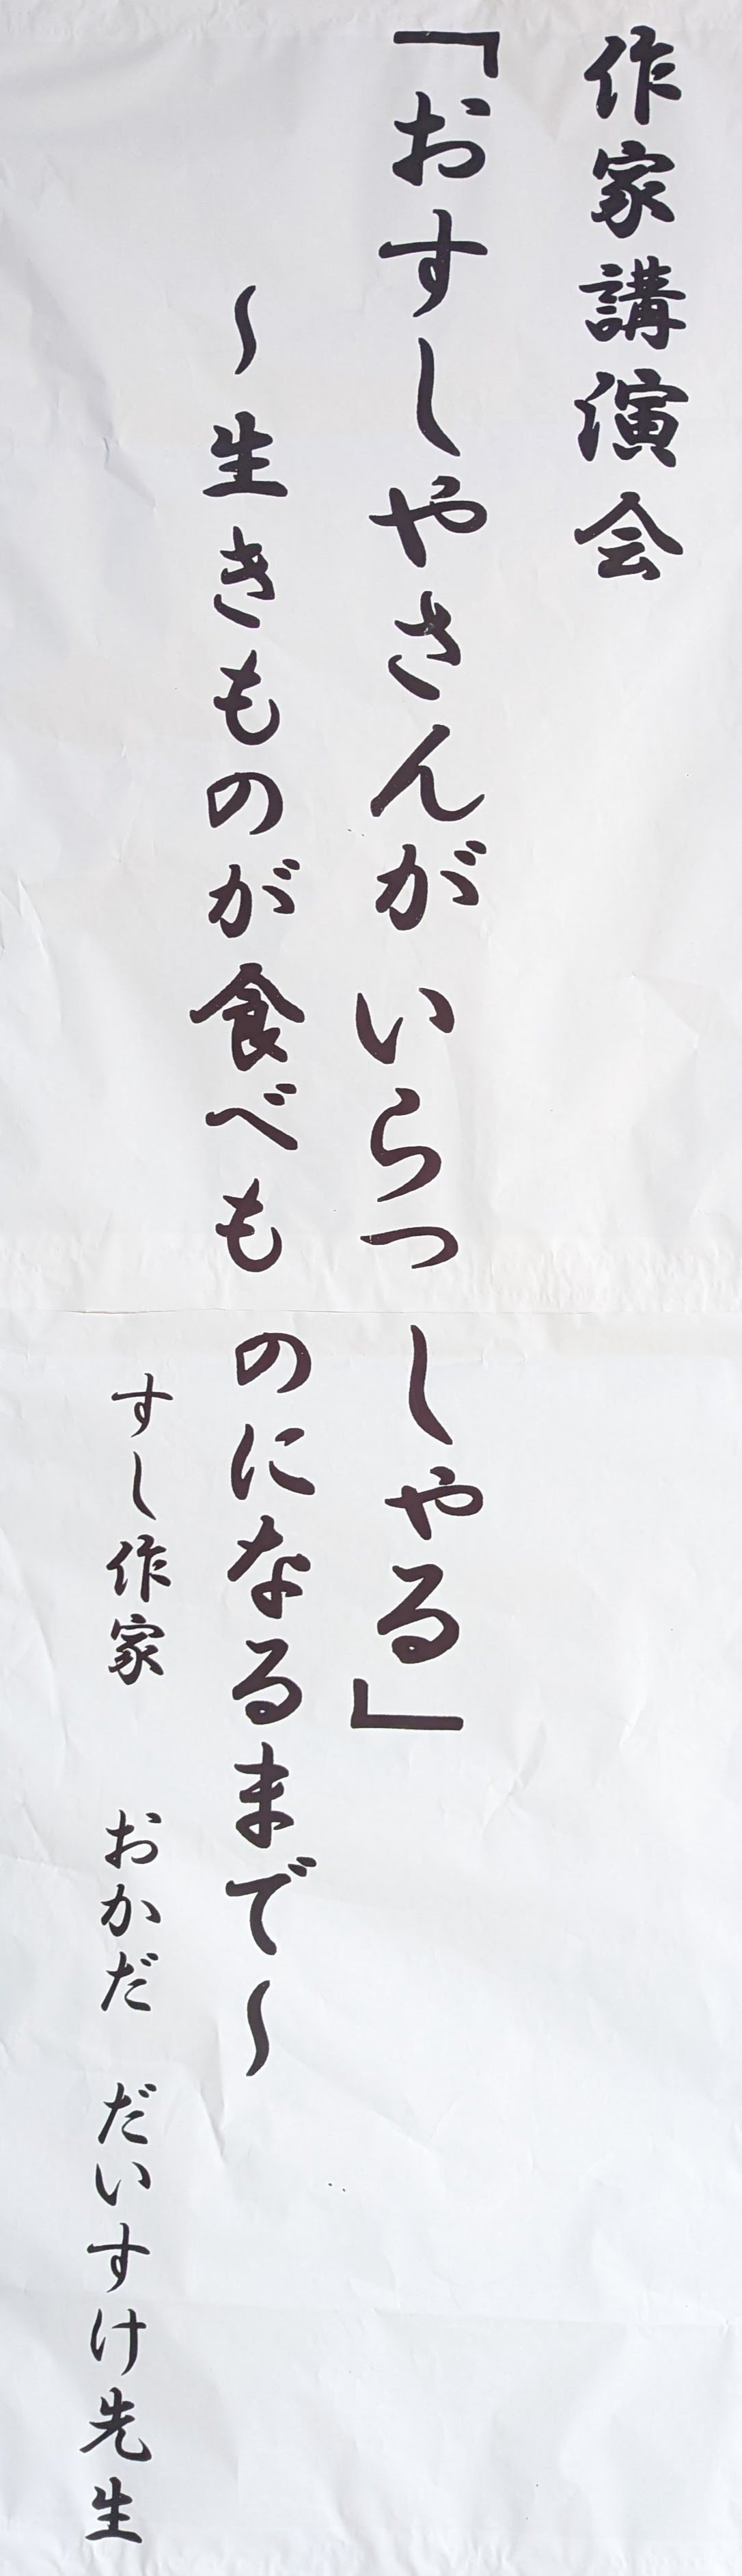 作家講演会
「おすしやさんがいらっしゃる」
～生きものが食べものになるまで～
すし作家　おかだ　だいすけ先生